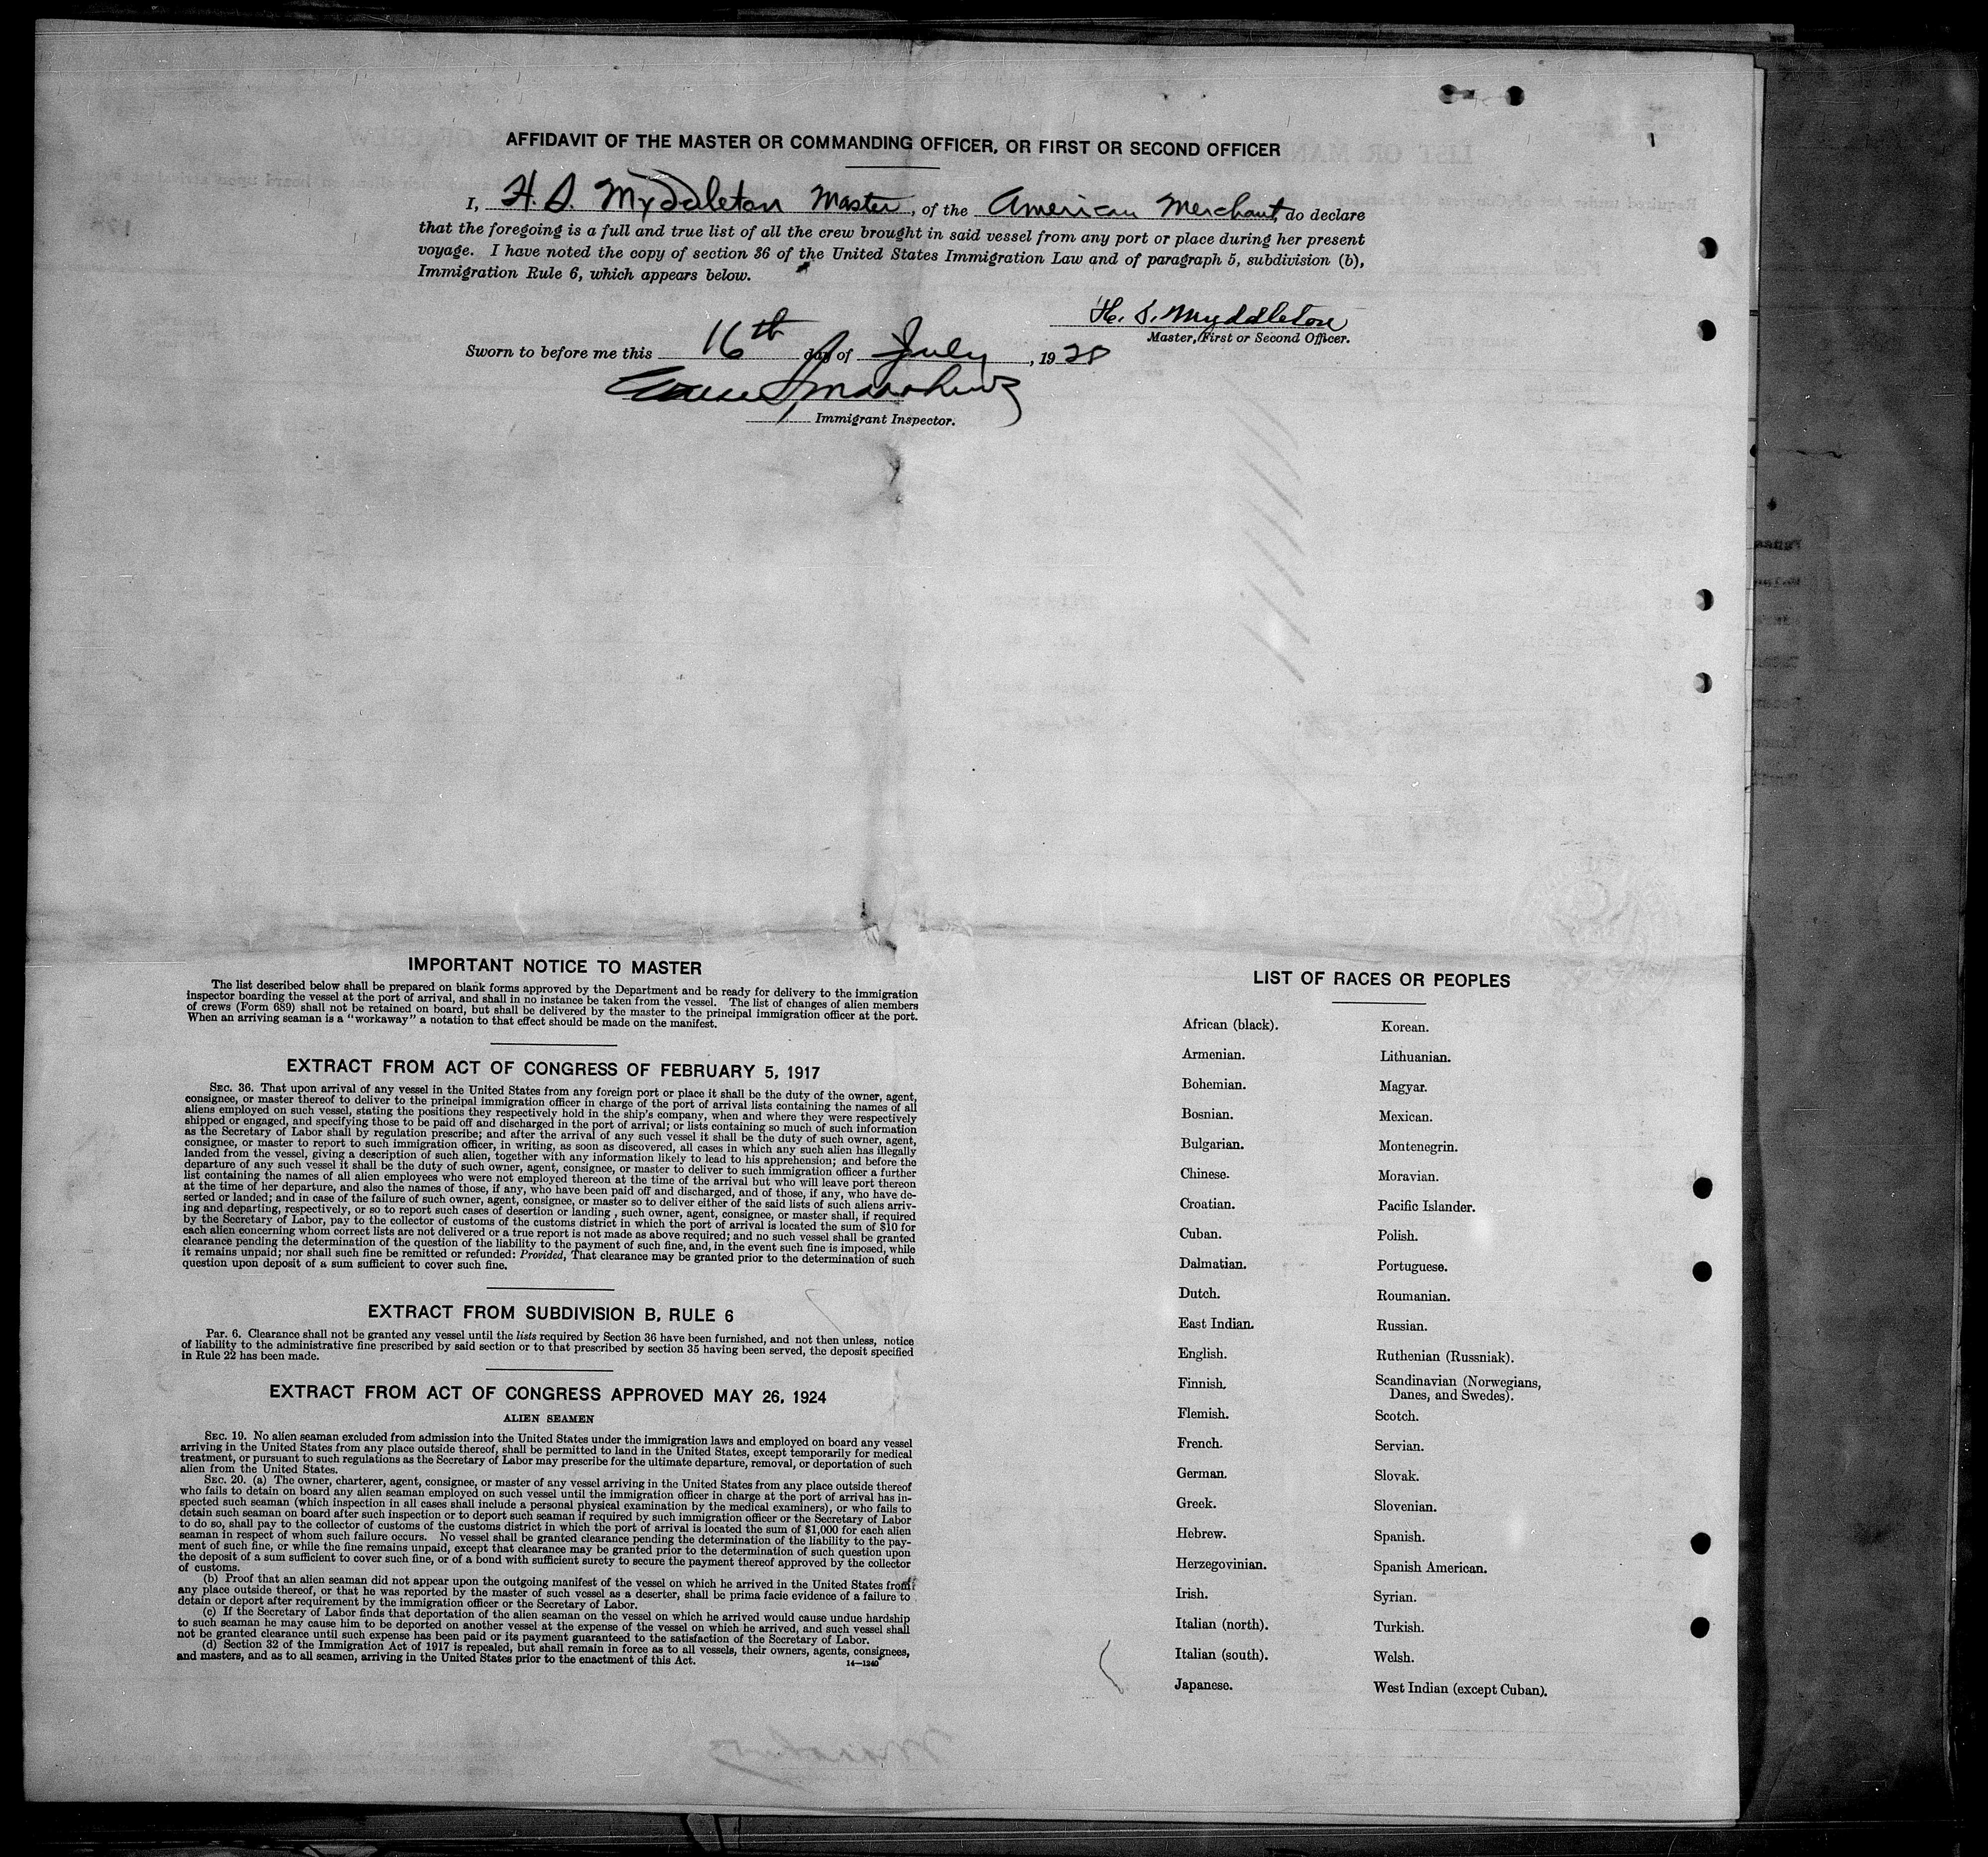 AFFIDAVIT OF THE MASTER OR COMMANDING OFFICER, OR FIRST OR SECOND OFFICER
I, H. S. Myddleton Master, of the American Merchant, do declare
that the foregoing is a full and true list of all the crew brought in said vessel from any port or place during her present
voyage. I have noted the copy of section 36 of the United States Immigration Law and of paragraph 5, subdivision (b),
Immigration Rule 6, which appears below.
H. S. Myddleton
Master, First or Second Officer.
Sworn to before me this 16th day of July, 1928
Immigrant Inspector.
IMPORTANT NOTICE TO MASTER
The list described below shall be prepared on blank forms approved by the Department and be ready for delivery to the immigration
inspector boarding the vessel at the port of arrival, and shall in no instance be taken from the vessel. The list of changes of alien members
of crews (Form 689) shall not be retained on board, but shall be delivered by the master to the principal immigration officer at the port.
When an arriving seaman is a "workaway" a notation to that effect should be made on the manifest.
EXTRACT FROM ACT OF CONGRESS OF FEBRUARY 5, 1917
SEC. 36. That upon arrival of any vessel in the United States from any foreign port or place it shall be the duty of the owner, agent,
consignee, or master thereof to deliver to the principal immigration officer in charge of the port of arrival lists containing the names of all
aliens employed on such vessel, stating the positions they respectively hold in the ship's company, when and where they were respectively
shipped or engaged, and specifying those to be paid off and discharged in the port of arrival; or lists containing so much of such information
as the Secretary of Labor shall by regulation prescribe; and after the arrival of any such vessel it shall be the duty of such owner, agent,
consignee, or master to report to such immigration officer, in writing, as soon as discovered, all cases in which any such alien has illegally
landed from the vessel, giving a description of such alien, together with any information likely to lead to his apprehension; and before the
departure of any such vessel it shall be the duty of such owner, agent, consignee, or master to deliver to such immigration officer a further
list containing the names of all alien employees who were not employed thereon at the time of the arrival but who will leave port thereon
at the time of her departure, and also the names of those, if any, who have been paid off and discharged, and of those, if any, who have de-
serted or landed; and in case of the failure of such owner, agent, consignee, or master so to deliver either of the said lists of such aliens arriv-
ing and departing, respectively, or so to report such cases of desertion or landing , such owner, agent, consignee, or master shall, if required
by the Secretary of Labor, pay to the collector of customs of the customs district in which the port of arrival is located the sum of $10 for
each alien concerning whom correct lists are not delivered or a true report is not made as above required; and no such vessel shall be granted
clearance pending the determination of the question of the liability to the payment of such fine, and, in the event such fine is imposed, while
it remains unpaid; nor shall such fine be remitted or refunded: Provided, That clearance may be granted prior to the determination of such
question upon deposit of a sum sufficient to cover such fine.
EXTRACT FROM SUBDIVISION B, RULE 6
Par. 6. Clearance shall not be granted any vessel until the lists required by Section 36 have been furnished, and not then unless, notice
of liability to the administrative fine prescribed by said section or to that prescribed by section 35 having been served, the deposit specified
in Rule 22 has been made.
EXTRACT FROM ACT OF CONGRESS APPROVED MAY 26, 1924
ALIEN SEAMEN
SEC. 19. No alien seaman excluded from admission into the United States under the immigration laws and employed on board any vessel
arriving in the United States from any place outside thereof, shall be permitted to land in the United States, except temporarily for medical
treatment, or pursuant to such regulations as the Secretary of Labor may prescribe for the ultimate departure, removal, or deportation of such
alien from the United States.
SEC. 20. (a) The owner, charterer, agent, consignee, or master of any vessel arriving in the United States from any place outside thereof
who fails to detain on board any alien seaman employed on such vessel until the immigration officer in charge at the port of arrival has in-
spected such seaman (which inspection in all cases shall include a personal physical examination by the medical examiners), or who fails to
detain such seaman on board after such inspection or to deport such seaman if required by such immigration officer or the Secretary of Labor
to do so, shall pay to the collector of customs of the customs district in which the port of arrival is located the sum of $1,000 for each alien
seaman in respect of whom such failure occurs. No vessel shall be granted clearance pending the determination of the liability to the pay-
ment of such fine, or while the fine remains unpaid, except that clearance may be granted prior to the determination of such question upon
the deposit of a sum sufficient to cover such fine, or of a bond with sufficient surety to secure the payment thereof approved by the collector
of customs.
(b) Proof that an alien seaman did not appear upon the outgoing manifest of the vessel on which he arrived in the United States from
any place outside thereof, or that he was reported by the master of such vessel as a deserter, shall be prima facie evidence of a failure to
detain or deport after requirement by the immigration officer or the Secretary of Labor.
(c) If the Secretary of Labor finds that deportation of the alien seaman on the vessel on which he arrived would cause undue hardship
to such seaman he may cause him to be deported on another vessel at the expense of the vessel on which he arrived, and such vessel shall
not be granted clearance until such expense has been paid or its payment guaranteed to the satisfaction of the Secretary of Labor.
(d) Section 32 of the Immigration Act of 1917 is repealed, but shall remain in force as to all vessels, their owners, agents, consignees,
and masters, and as to all seamen, arriving in the United States prior to the enactment of this Act.
14—1240
LIST OF RACES OR PEOPLES
African (black).
Armenian.
Bohemian.
Bosnian.
Bulgarian.
Chinese.
Croatian.
Cuban.
Dalmatian.
Dutch.
East Indian.
English.
Finnish.
Flemish.
French.
German.
Greek.
Hebrew.
Herzegovinian.
Irish.
Italian (north).
Italian (south).
Japanese.
Korean.
Lithuanian.
Magyar.
Mexican.
Montenegrin.
Moravian.
Pacific Islander.
Polish.
Portuguese.
Roumanian.
Russian.
Ruthenian (Russniak).
Scandinavian (Norwegians,
Danes, and Swedes).
Scotch.
Servian.
Slovak.
Slovenian.
Spanish.
Spanish American.
Syrian.
Turkish.
Welsh.
West Indian (except Cuban).